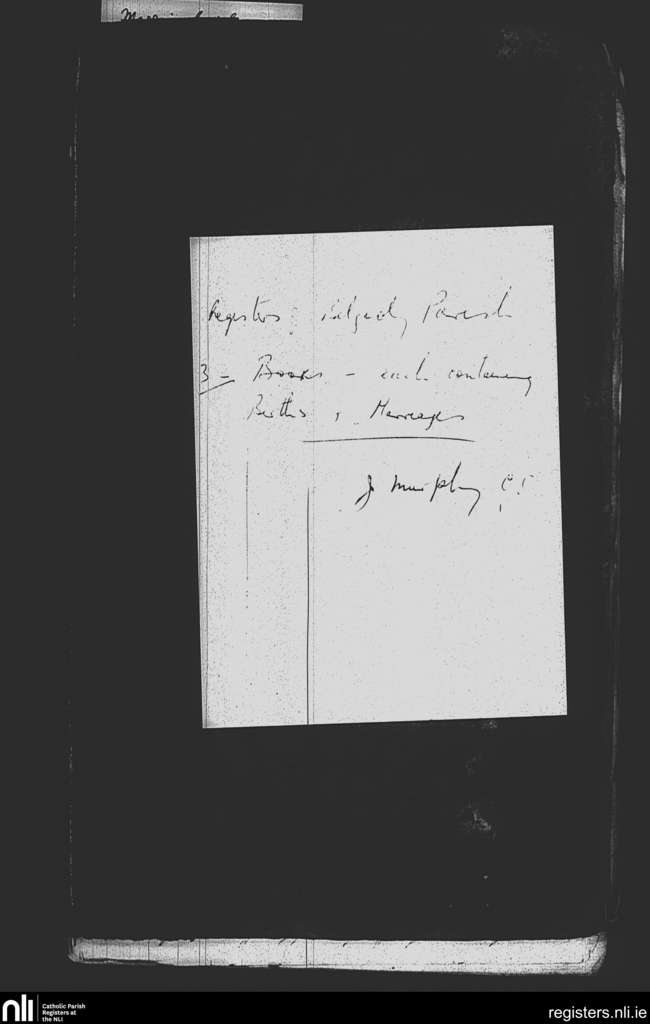 Registers: Kilgeely Parish
3 – Books – each containing
Births & Marriages
J Murphy C.C.
nli
Catholic Parish
Registers at
the NLI
registers.nli.ie